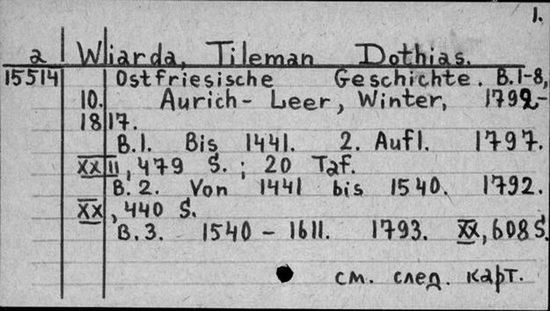 1.
a Wiarda, Tileman Dothias.
15514 Ostfriesische Geschichte. B.1-8,
10. Aurich-Leer, Winter, 1792-
1817.
B.1. Bis 1441. 2. Aufl. 1797.
XXII, 479 S.; 20 Taf.
B.2. Von 1441 bis 1540. 1792.
XX, 440 S.
B.3. 1540-1611. 1793. XX, 608 S.
см. след. карт.